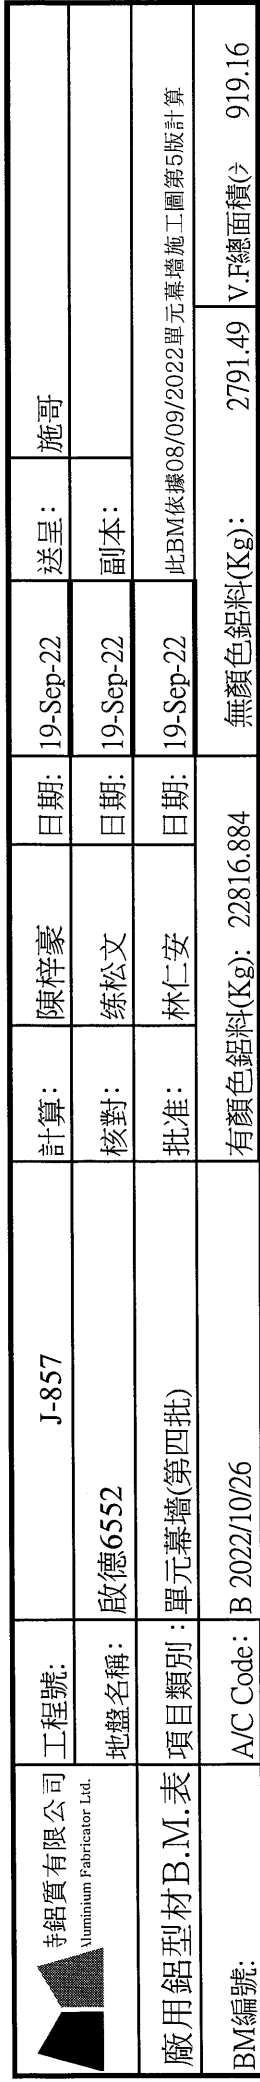 鋁質有限公司
Aluminium Fabricator Ltd.
工程號: J-857 計算: 陳梓豪 日期: 19-Sep-22 送呈: 施哥
地盤名稱: 啟德6552 核對: 练松文 日期: 19-Sep-22 副本:
廠用鋁型材B.M.表 項目類別: 單元幕墙(第四批) 批准: 林仁安 日期: 19-Sep-22 此BM依據08/09/2022單元幕墻施工圖第5版計算
BM編號: A/C Code: B 2022/10/26 有顏色鋁料(Kg): 22816.884 無顏色鋁料(Kg): 2791.49 V.F總面積( 919.16